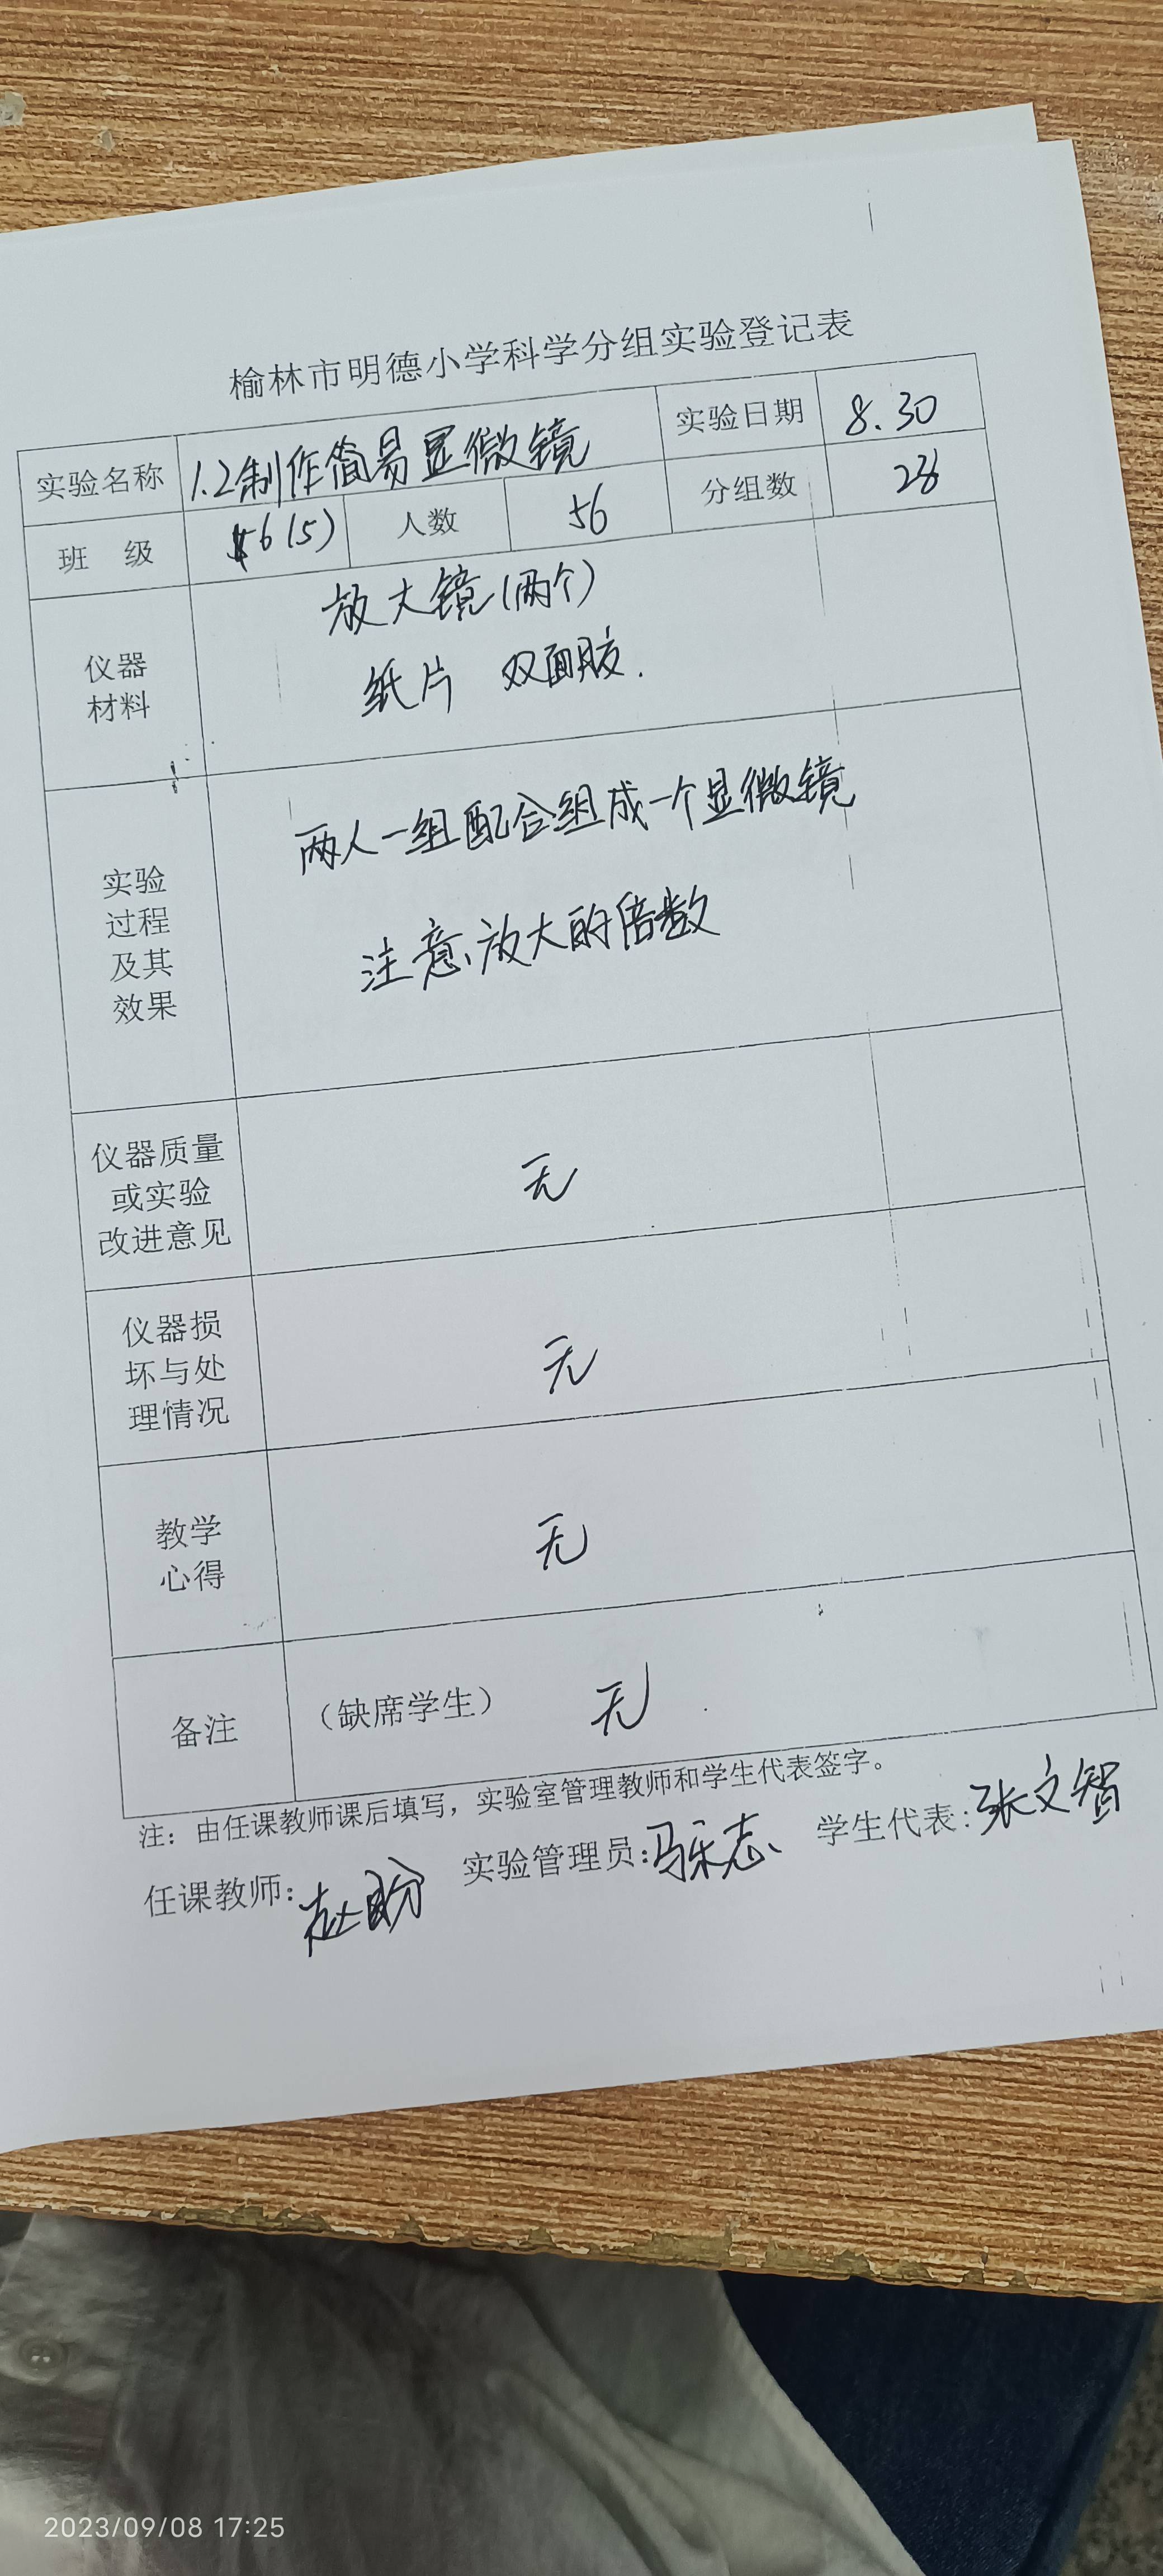 榆林市明德小学科学分组实验登记表
实验名称 1.2制作简易显微镜 实验日期 8.30
班 级 6(5) 人数 56 分组数 28
仪器
材料
放大镜(两个)
纸片 双面胶.
实验
过程
及其
效果
两人一组配合组成一个显微镜
注意、放大的倍数
仪器质量
或实验
改进意见
无
仪器损
坏与处
理情况
无
教学
心得
无
备注 (缺席学生) 无
注：由任课教师课后填写，实验室管理教师和学生代表签字。
任课教师: 赵盼 实验管理员: 马 志 学生代表: 张文智
2023/09/08 17:25